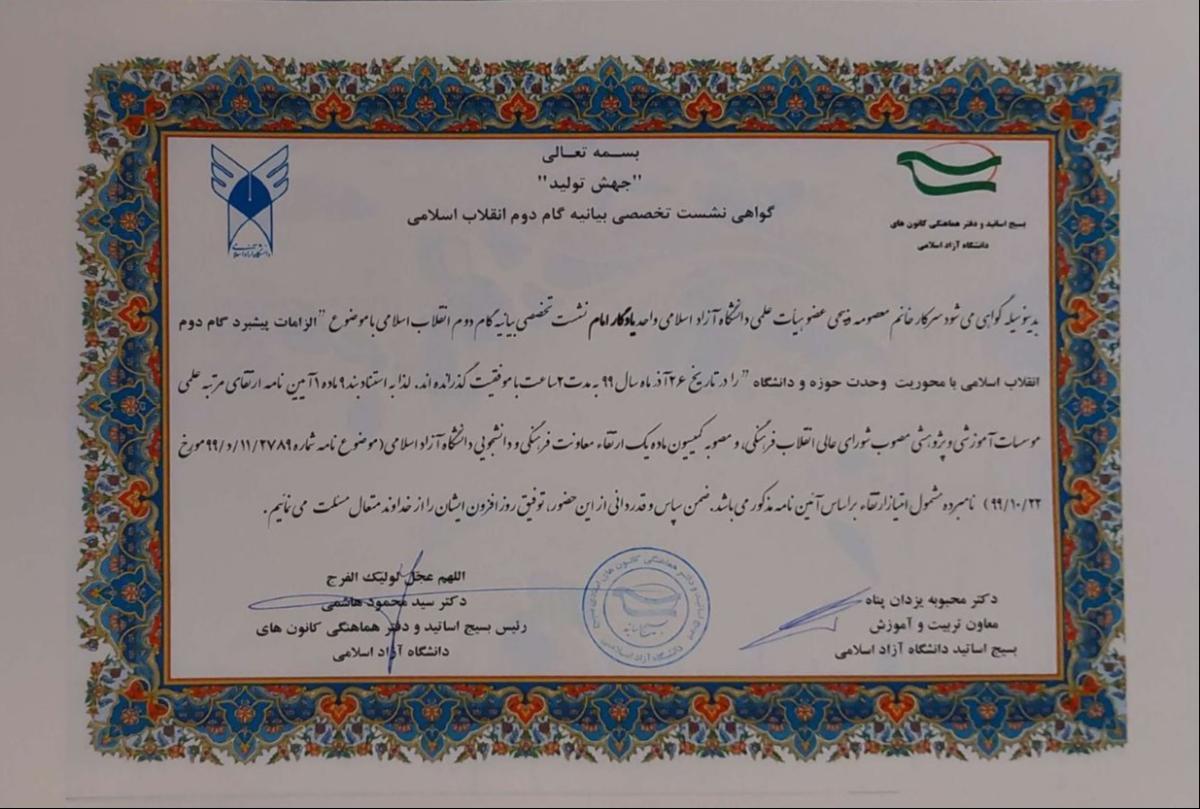 بسمه تعالی
"جهش تولید"
گواهی نشست تخصصی بیانیه گام دوم انقلاب اسلامی
بسیج اساتید و دفتر هماهنگی کانون های
دانشگاه آزاد اسلامی
دانشگاه آزاد اسلامی
بدینوسیله گواهی می شود سرکار خانم معصومه ذبیحی عضو هیأت علمی دانشگاه آزاد اسلامی واحد یادگار امام نشست تخصصی بیانیه گام دوم انقلاب اسلامی با موضوع "الزامات پیشبرد گام دوم
انقلاب اسلامی با محوریت وحدت حوزه و دانشگاه" را در تاریخ ۲۶ آذر ماه سال ۹۹ به مدت ۲ ساعت با موفقیت گذرانده اند. لذا به استناد بند ۹ ماده ۱ آیین نامه ارتقای مرتبه علمی
موسسات آموزشی و پژوهشی مصوب شورای عالی انقلاب فرهنگی، و مصوبه کمیسیون ماده یک ارتقاء معاونت فرهنگی و دانشجویی دانشگاه آزاد اسلامی(موضوع نامه شماره ۱۱/۲۷۸۹/د/۹۹ مورخ
۹۹/۱۰/۲۲) نامبرده مشمول امتیاز ارتقاء براساس آئین نامه مذکور می باشد. ضمن سپاس و قدردانی از این حضور، توفیق روز افزون ایشان را از خداوند متعال مسئلت می نمائیم.
دکتر محبوبه یزدان پناه
معاون تربیت و آموزش
بسیج اساتید دانشگاه آزاد اسلامی
اللهم عجل لولیک الفرج
دکتر سید محمود هاشمی
رئیس بسیج اساتید و دفتر هماهنگی کانون های
دانشگاه آزاد اسلامی
دانشگاه آزاد اسلامی